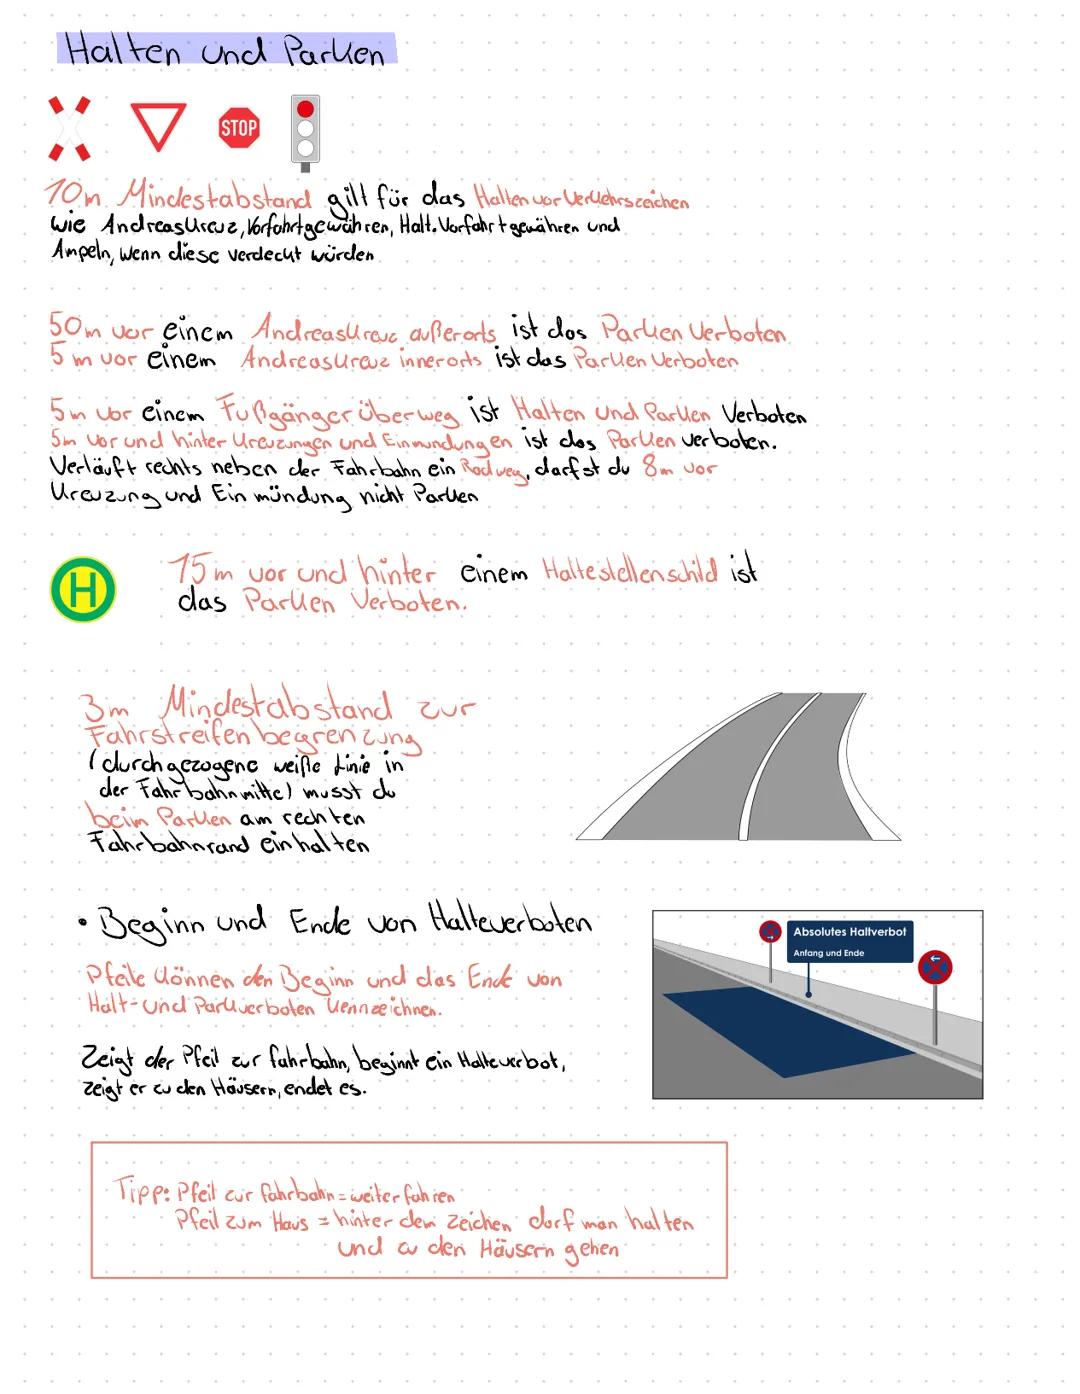 Halten und Parken
STOP
10m Mindestabstand gilt für das Halten vor Verkehrszeichen
wie Andreaskreuz, Vorfahrt gewähren, Halt. Vorfahrt gewähren und
Ampeln, wenn diese verdeckt würden
50m vor einem Andreaskreuz außerorts ist das Parken Verboten
5m vor einem Andreaskreuz innerorts ist das Parken Verboten
5m vor einem Fußgänger Überweg ist Halten und Parken Verboten
5m vor und hinter Kreuzungen und Einmundungen ist das Parken verboten.
Verläuft rechts neben der Fahrbahn ein Radweg, darfst du 8m vor
Kreuzung und Einmündung nicht Parken
H
15m vor und hinter einem Haltestellenschild ist
das Parken Verboten.
3m Mindestabstand zur
Fahrstreifenbegrenzung
(durchgezogene weiße Linie in
der Fahrbahnmitte) musst du
beim Parken am rechten
Fahrbahnrand einhalten
• Beginn und Ende von Halteverboten
Absolutes Haltverbot
Anfang und Ende
Pfeile können den Beginn und das Ende von
Halt- und Parkverboten kennzeichnen.
Zeigt der Pfeil zur fahrbahn, beginnt ein Halteverbot,
zeigt er zu den Häusern, endet es.
Tipp: Pfeil zur fahrbahn = weiter fahren
Pfeil zum Haus = hinter dem Zeichen darf man halten
und zu den Häusern gehen